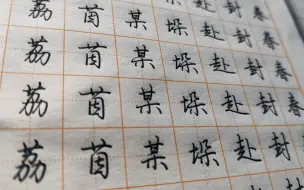 荔茵某垛赴封春
荔茵某垛赴封春
荔茵某垛赴封春
荔茵某垛赴封春